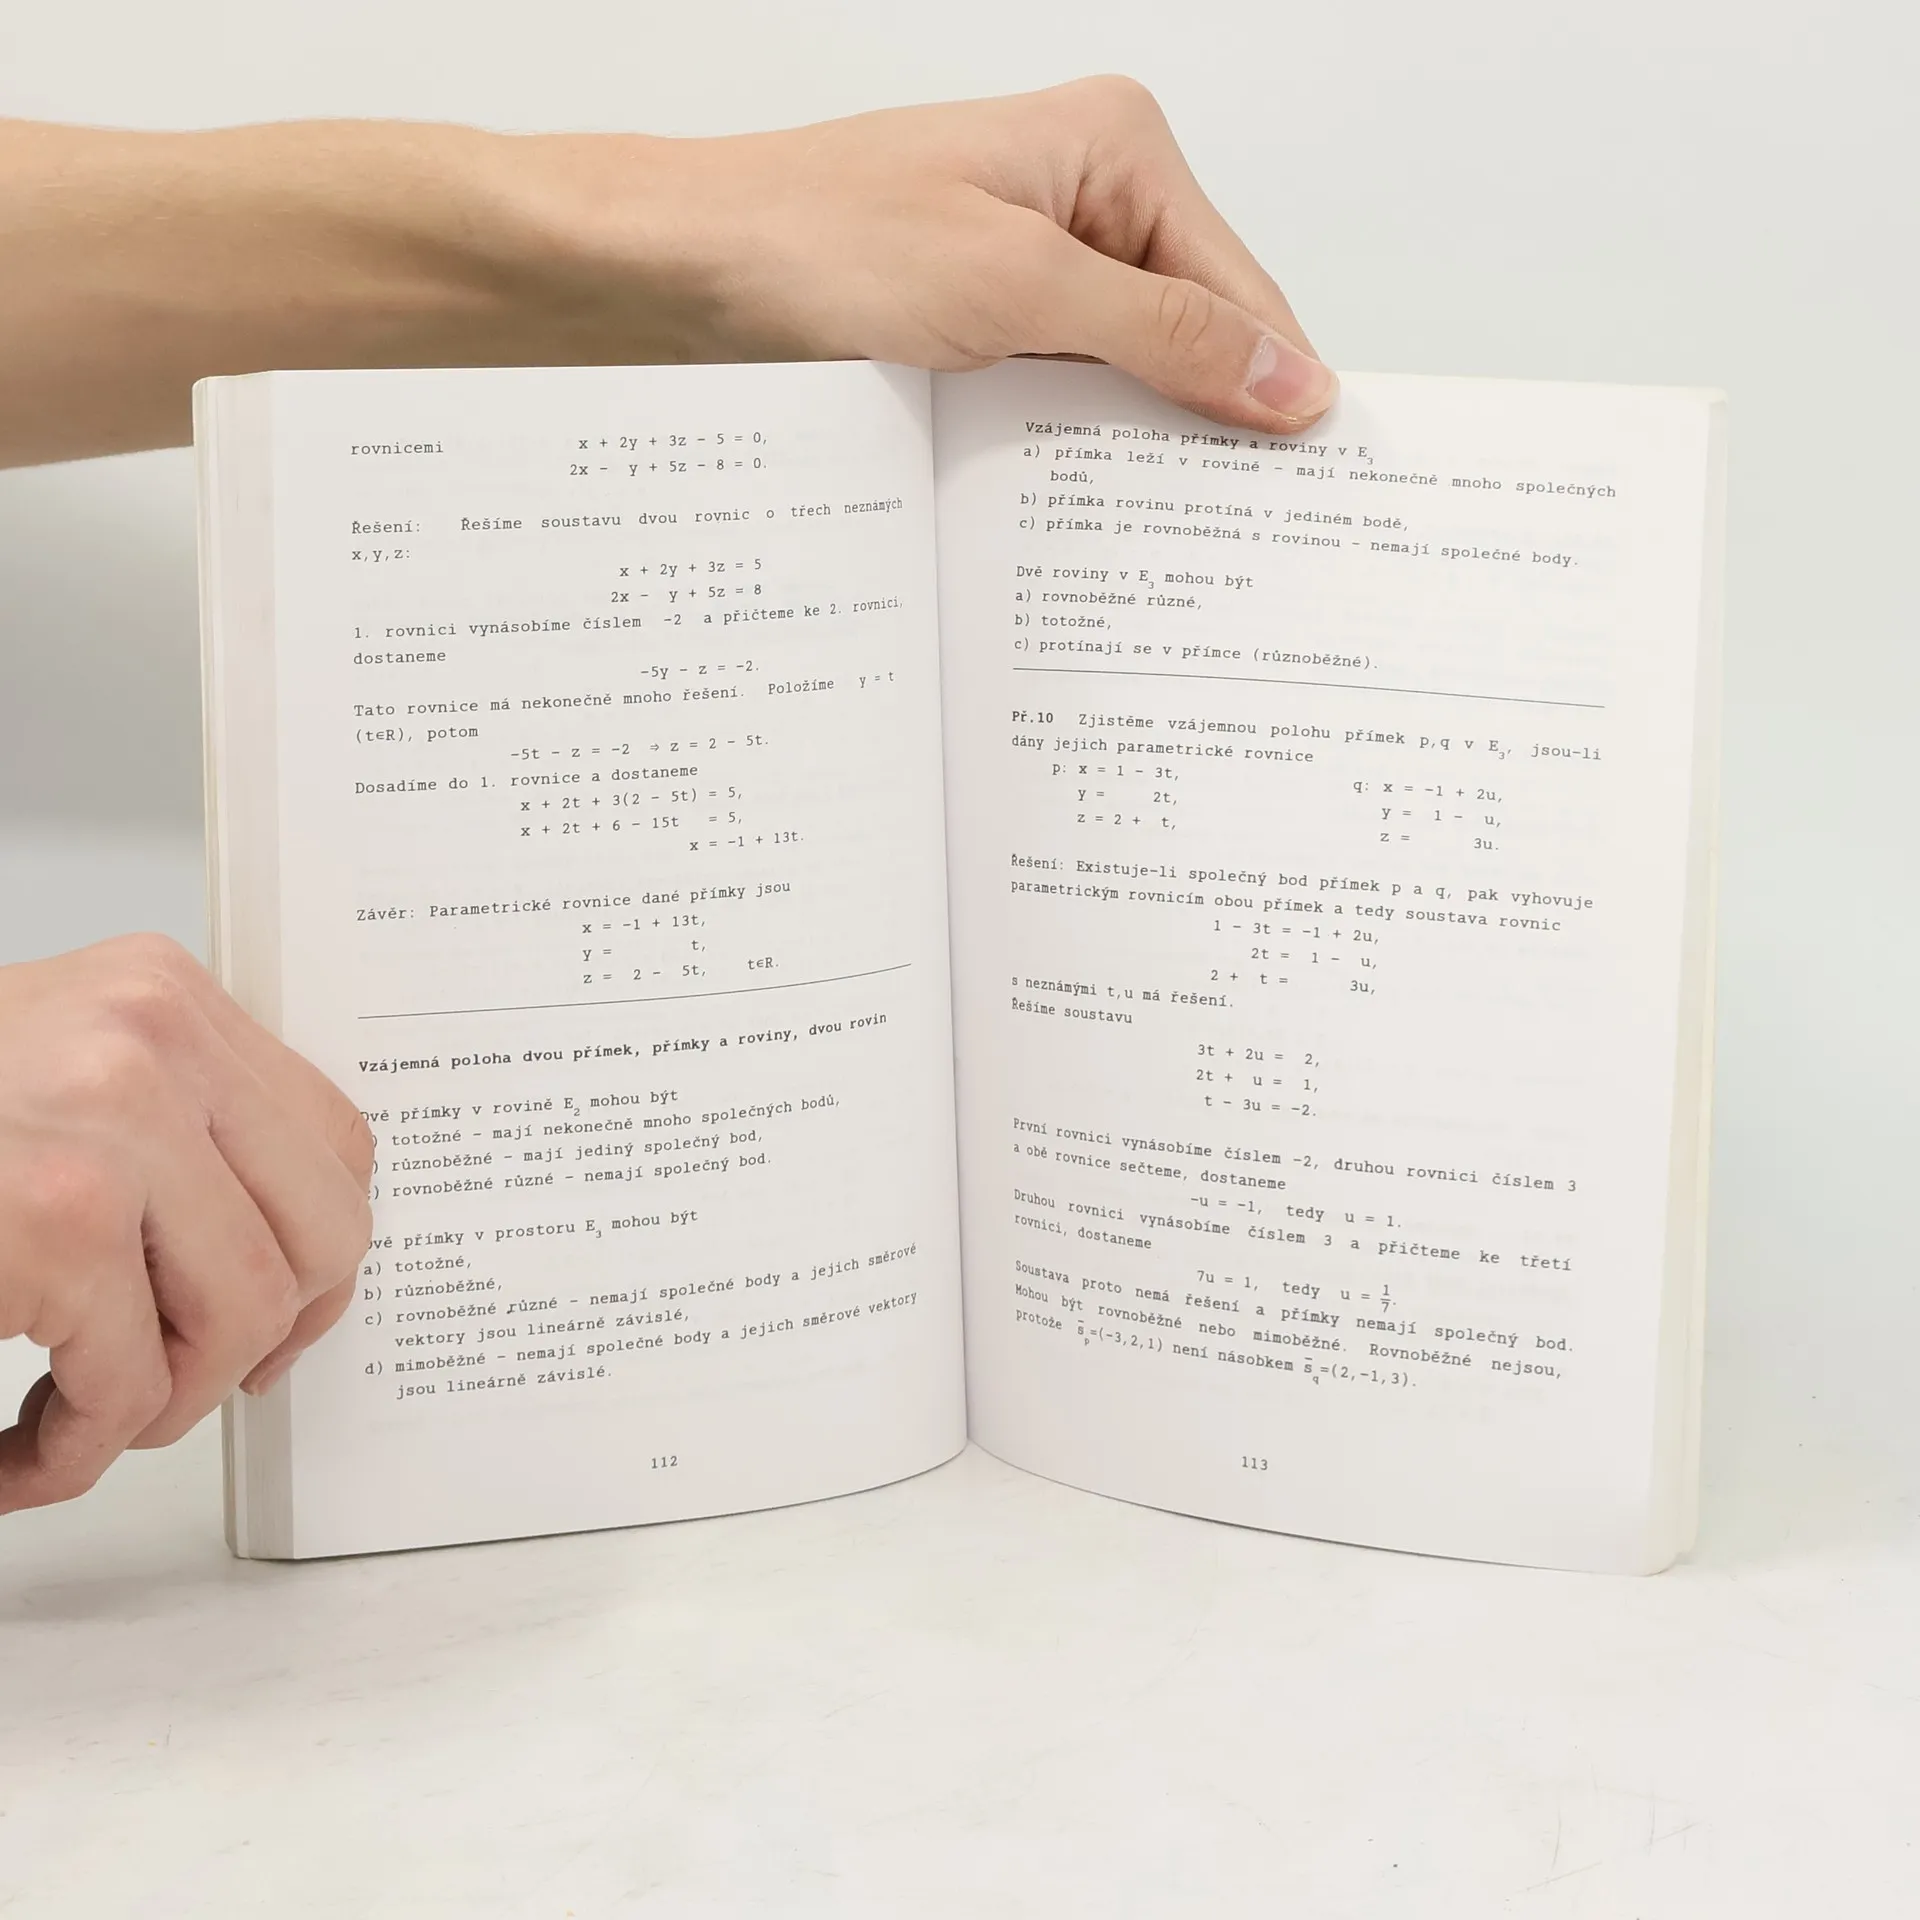 rovnicemi x + 2y + 3z - 5 = 0,
2x - y + 5z - 8 = 0.
Řešení: Řešíme soustavu dvou rovnic o třech neznámých
x,y,z:
x + 2y + 3z = 5
2x - y + 5z = 8
1. rovnici vynásobíme číslem -2 a přičteme ke 2. rovnici,
dostaneme
-5y - z = -2.
Tato rovnice má nekonečně mnoho řešení. Položíme y = t
(t∈R), potom
-5t - z = -2 ⇒ z = 2 - 5t.
Dosadíme do 1. rovnice a dostaneme
x + 2t + 3(2 - 5t) = 5,
x + 2t + 6 - 15t = 5,
x = -1 + 13t.
Závěr: Parametrické rovnice dané přímky jsou
x = -1 + 13t,
y = t,
z = 2 - 5t, t∈R.
Vzájemná poloha dvou přímek, přímky a roviny, dvou rovin
přímky v rovině E₂ mohou být
) totožné - mají nekonečně mnoho společných bodů,
) různoběžné - mají jediný společný bod,
) rovnoběžné různé - nemají společný bod.
přímky v prostoru E₃ mohou být
a) totožné,
b) různoběžné,
c) rovnoběžné různé - nemají společné body a jejich směrové
vektory jsou lineárně závislé,
d) mimoběžné - nemají společné body a jejich směrové vektory
jsou lineárně závislé.
112
Vzájemná poloha přímky a roviny v E₃
a) přímka leží v rovině - mají nekonečně mnoho společných
bodů,
b) přímka rovinu protíná v jediném bodě,
c) přímka je rovnoběžná s rovinou - nemají společné body.
Dvě roviny v E₃ mohou být
a) rovnoběžné různé,
b) totožné,
c) protínají se v přímce (různoběžné).
Př.10 Zjistěme vzájemnou polohu přímek p,q v E₃, jsou-li
dány jejich parametrické rovnice
p: x = 1 - 3t, q: x = -1 + 2u,
y = 2t, y = 1 - u,
z = 2 + t, z = 3u.
Řešení: Existuje-li společný bod přímek p a q, pak vyhovuje
parametrickým rovnicím obou přímek a tedy soustava rovnic
1 - 3t = -1 + 2u,
2t = 1 - u,
2 + t = 3u,
s neznámými t,u má řešení.
Řešíme soustavu
3t + 2u = 2,
2t + u = 1,
t - 3u = -2.
První rovnici vynásobíme číslem -2, druhou rovnici číslem 3
a obě rovnice sečteme, dostaneme
-u = -1, tedy u = 1.
Druhou rovnici vynásobíme číslem 3 a přičteme ke třetí
rovnici, dostaneme
7u = 1, tedy u = 1/7.
Soustava proto nemá řešení a přímky nemají společný bod.
Mohou být rovnoběžné nebo mimoběžné. Rovnoběžné nejsou,
protože s̄ₚ=(-3,2,1) není násobkem s̄_q=(2,-1,3).
113